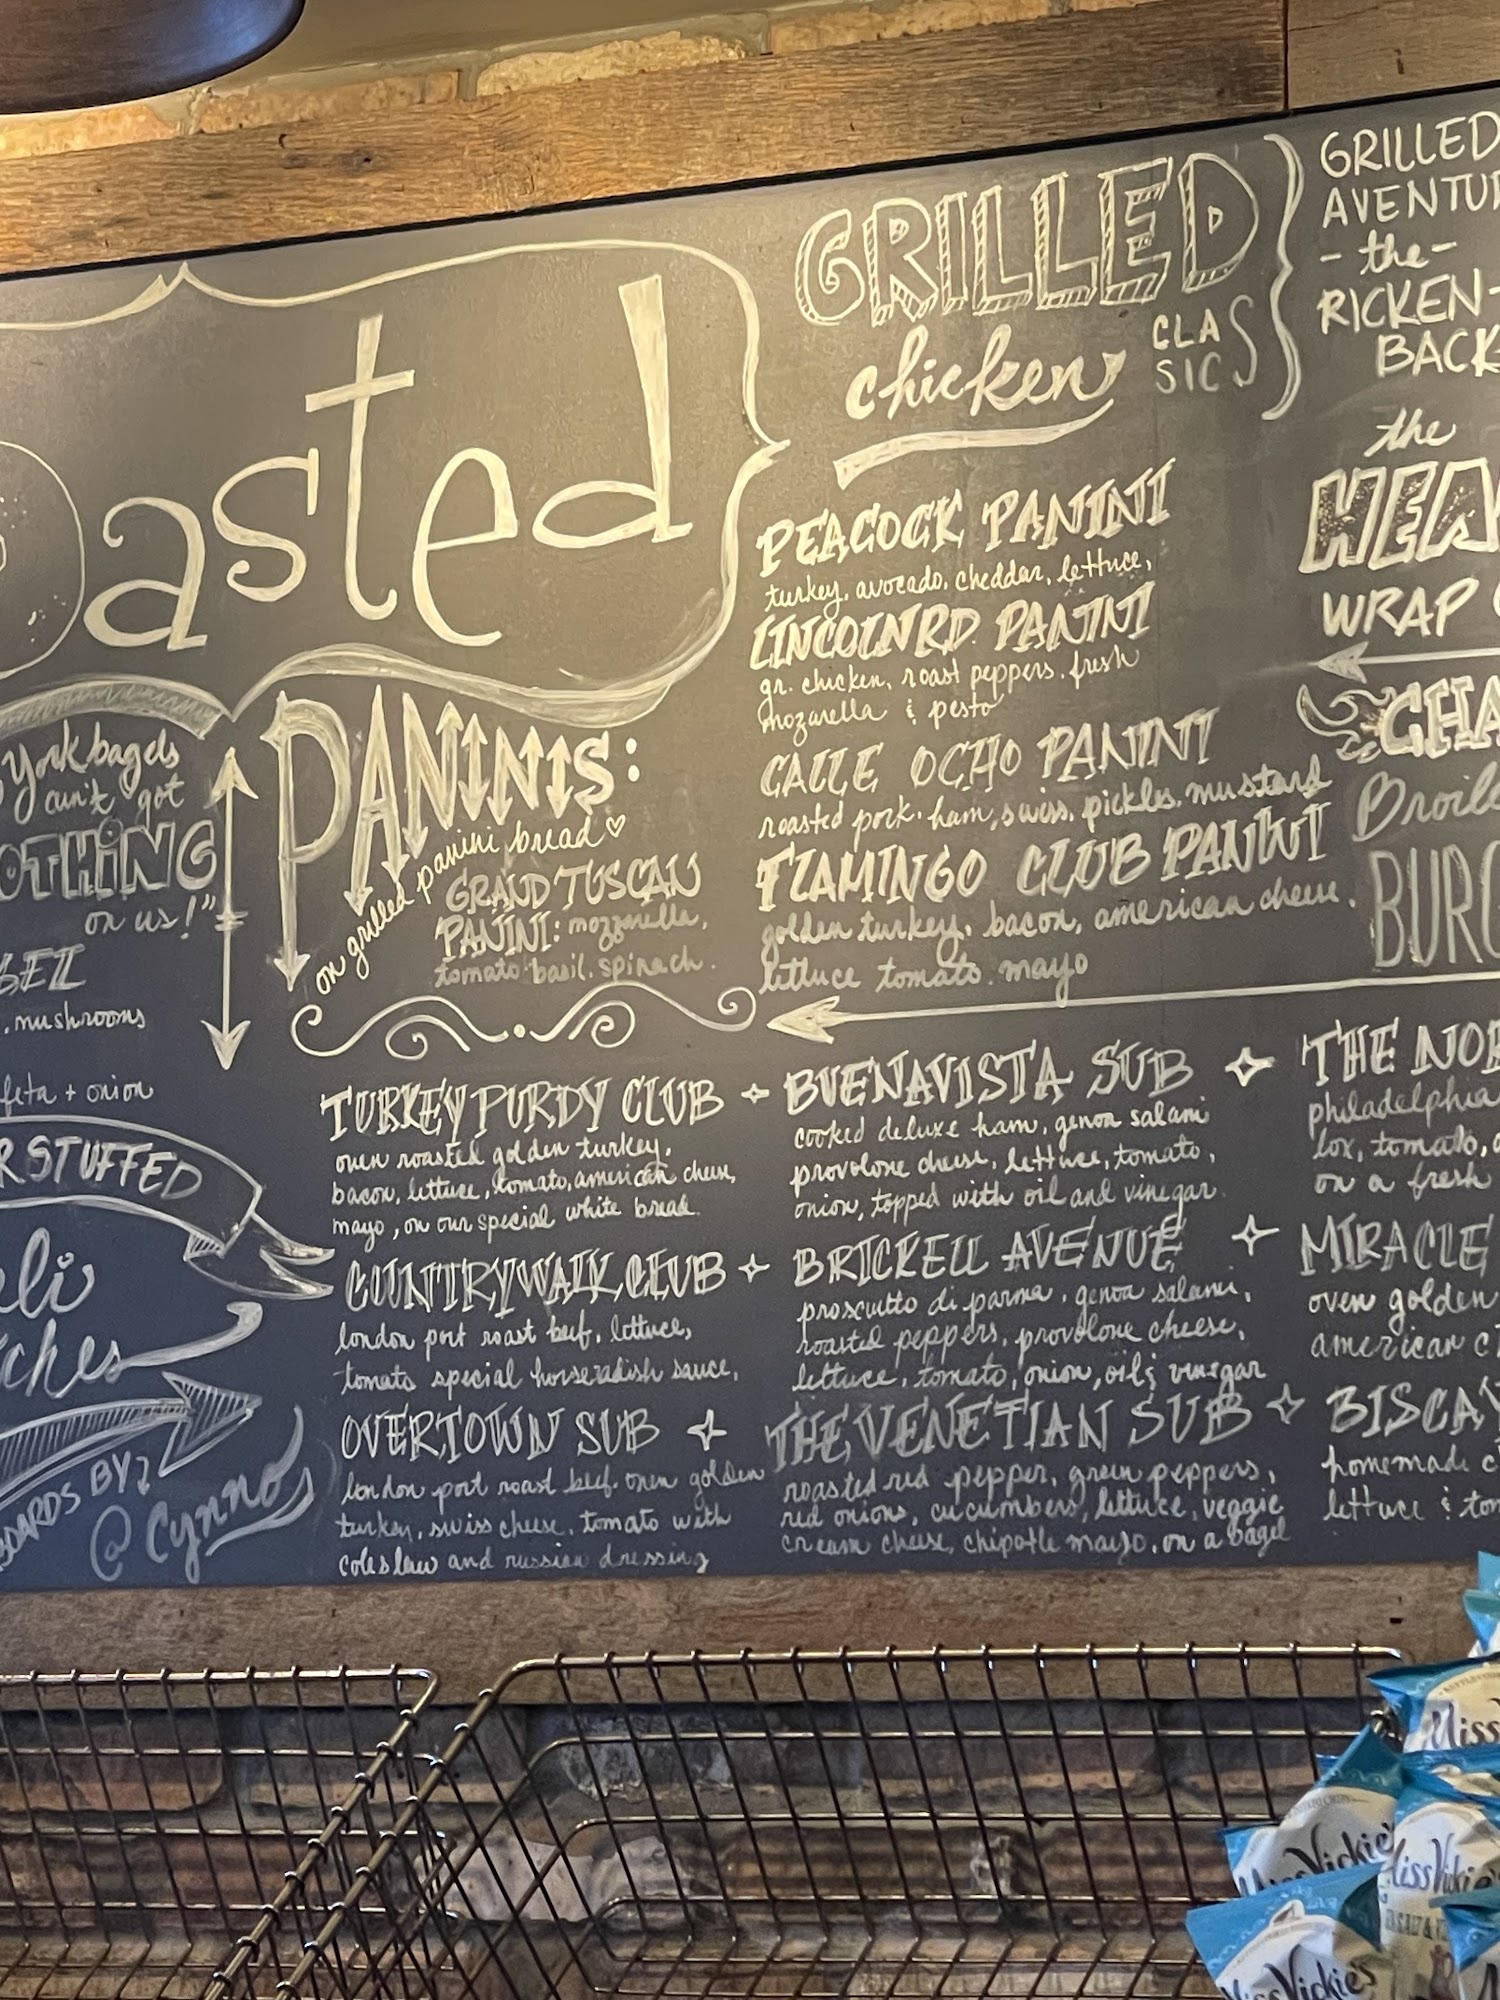 asted
GRILLED
chicken
CLAS
SIC
GRILLED
AVENTU
- the -
RICKEN-
BACK
the
HEA
WRAP
CHA
Broile
BURG
York bagels
ain't got
OTHING
on us!"
BEL
. mushrooms
feta + onion
R STUFFED
eli
ches
BOARDS BY:
@Cynno
PANINIS:
on grilled panini bread ♡
GRAND TUSCAN
PANINI: mozzarella,
tomato. basil. spinach.
PEACOCK PANINI
turkey, avocado, cheddar, lettuce,
LINCOLN RD. PANINI
gr. chicken, roast peppers, fresh
mozarella & pesto
CALLE OCHO PANINI
roasted pork, ham, swiss, pickles, mustard
FLAMINGO CLUB PANINI
golden turkey, bacon, american cheese,
lettuce tomato. mayo
TURKEY PURDY CLUB
oven roasted golden turkey,
bacon, lettuce, tomato, american cheese,
mayo, on our special white bread.
COUNTRYWALK CLUB
london port roast beef, lettuce,
tomato special horseradish sauce,
OVERTOWN SUB
london port roast beef, oven golden
turkey, swiss cheese, tomato with
coleslaw and russian dressing
BUENAVISTA SUB
cooked deluxe ham, genoa salami
provolone cheese, lettuce, tomato,
onion, topped with oil and vinegar
BRICKELL AVENUE
prosciutto di parma, genoa salami,
roasted peppers, provolone cheese,
lettuce, tomato, onion, oil & vinegar
THE VENETIAN SUB
roasted red pepper, green peppers,
red onions, cucumbers, lettuce, veggie
cream cheese, chipotle mayo, on a bagel
THE NOR
philadelphia
lox, tomato,
on a fresh
MIRACLE
oven golden
american ch
BISCAY
homemade c
lettuce & tom
Miss
Miss Vickie's
Miss Vickie's
Miss Vickie's